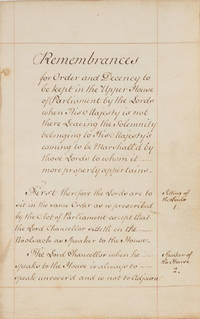 Remembrances
for Order and Decency to
be kept in the Upper House
of Parliament by the Lords
when His Majesty is not
there Leaving the Solemnity
belonging to His Majesty's
coming to be Marshall'd by
those Lords to whom it
more properly appertains
First therefore the Lords are to
sit in the same Order as is prescribed
by the Act of Parliament except that
the Lord Chancellor sitteth on the
Woolsack as Speaker to the House
Sitting of
the Lords
1
The Lord Chancellor when he
speaks to the House is always to
speak uncovered and is not to Adjourn
Speaker of
the House
2